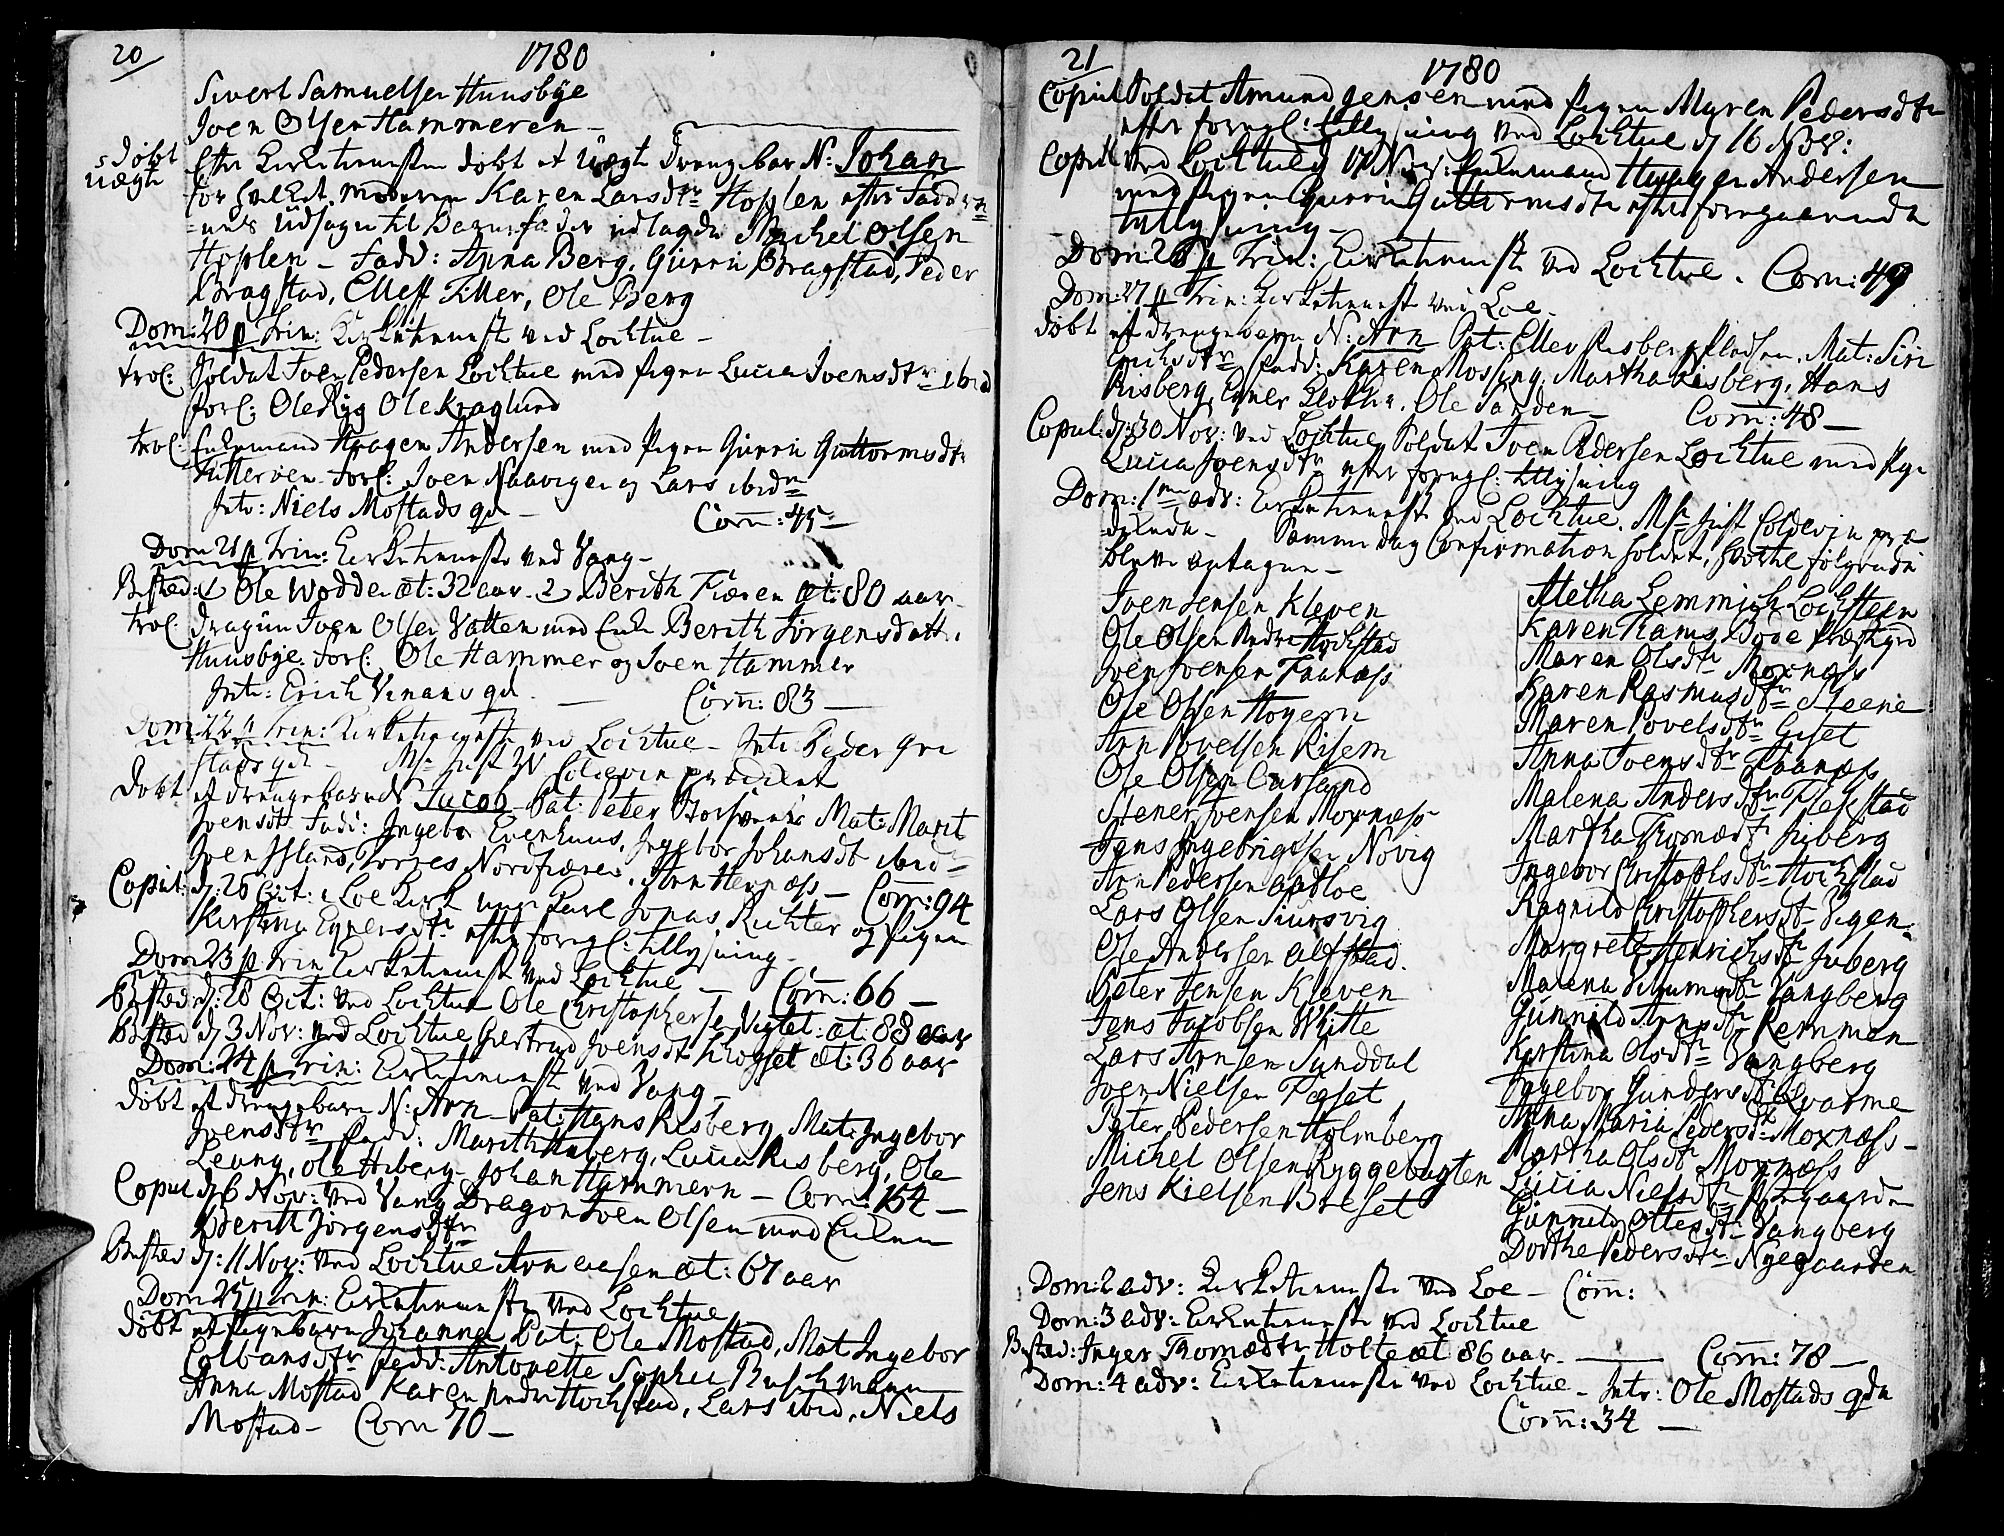 20
1780
Sivert Samuelsen Huusbye
Joen Olsen Hammeren
døbt
uægte
Efter Kirketienesten døbt et Uægte Drengebar N: Johan
for hvilket moderen Karen Larsdtr Hoplen efter Fadder
Udsagn til Barnefader udlagde Michel Olsen
Hoplen - Fadd: Anna Berg, Gurru Bragstad, Peder
Bragstad, Elleff Tiller, Ole Berg
Dom: 20 p Trin: Kirketieneste ved Lochtue -
trol: Soldat Joen Pedersen Lochtue med Pigen Lucia Joensdtr ibid
forl: Ole Ryg Ole Kraglund
trol: Enkemand Haagen Andersen med Pigen Gurru Guttormsdtr
forl: Joen Naavigen og Lars ibidm
Intr: Niels Mostads qv - Com: 45 -
Dom 21 p Trin: Kirketieneste ved Vang -
Bested: 1 Ole Wodde æt: 32 aar. 2 Berith Fiæren æt: 80 aar
trol: dragun Joen Olsen Vatten med Enke Berith Jørgensdatter
Huusbye. forl: Ole Hammer og Joen Hammer
Intr: Erich Vinans qv - Com: 83 -
Dom: 22 p Trin: Kirketieneste ved Lochtue - Intr: Peder Gre
stads qv - Mr Just Coldevin prædicket
Døbt et drengebarn N: Jacob Pat: Peter Mat: Marit
Joensdtr Fadd: Ingebor Evenhuus, Ingebor Johansdtr ibid
Joen Island, Torres Nordfiæren, Arn Hernæss - Com: 94
Copul: d: 26 Oct: i Loe Kirk Jonas Richter og Pigen
Kirsting Eynersdtr efter foregl: tillysning -
Dom 23 p Trin Kirketieneste ved Lochtue - Com: 66 -
Bested: d: 28 Oct: ved Lochtue Ole Christophersen Vigtel: æt: 88 aar
Bested d 3 Nov: ved Lochtue Giertrud Joensdtr Krogset æt: 36 aar
Dom: 24 p Trin: Kirketieneste ved Vang -
døbt et drengebarn N: Arn - Pat: Hans Risberg, Mat: Ingebor
Joensdtr Fadd: Marith Huberg, Lucia Risberg, Ole
Leang, Ole Hiberg - Johan Hammern - Com: 154 -
Copul d 6 Nov: ved Vang Dragon Joen Olsen med Enken
Berith Jørgensdtr
Bested d: 11 Nov: ved Lochtue Arn aasen æt: 67 aar
Dom 25 p Trin: Kirketieneste ved Lochtue
døbt et Pigebarn Johanna Pat: Ole Mostad, Mat Ingebor
Colbansdtr Fadd: Antonette Sophia Buschmann
Anna Mostad Karen nedre Hochstad, Lars ibid, Niels
Mostad - Com 70 -
21
1780
Copul Soldat Amund Jensen med Pigen Maren Pedersdtr
efter foregl: tillysning ved Lochtue d 16 Nov:
Copul ved Lochtue d 17 Nov: Enkemand Haagen Andersen
med Pigen Gurru Guttormsdtr efter foregaaende
tillysning -
Dom 26 p Trin: Kirketieneste ved Lochtue. Com: 49
Dom: 27 p Trin: Kirketieneste ved Loe -
døbt et drengebarn N: Arn Pat: Ellev Risberg Pladsen. Mat: Siri
Erichsdtr Fadd: Karen Mossing, Martha Risberg, Hans
Risberg, Ole Sanden - Com: 48 -
Copul: d: 30 Nov: ved Lochtue, Soldat Joen Pedersen Lochtue med Pige
Lucia Joensdtr efter foregl: tillysning
Dom: 1me adv: Kirketieneste ved Lochtue. Mr Just Coldevin præ
dikede - Samme dag Confirmation holdet, hvorhe følgende
bleve antagne -
Joen Jensen Kleven
Ole Olsen Nedre Hochstad
Joen Joensen Faanæss
Ole Olsen Høgern
Arn Povelsen Risem
Ole Olsen Aarsand
Stener Joensen Moxnæss
Jens Ingebrigtsen Nøvig
Arn Pedersen aadloe
Lars Olsen Siursvig
Ole Andersen Alfstad
Peter Jensen Kleven
Jens Jacobsen Whitte
Lars Arnsen Sunddal
Joen Nielsen Fæset
Peter Pedersen Holmberg
Michel Olsen Ryggebugten
Jens Kielsen Breset
Metha Lemmich Lochsteen
Karen Rams Boe Præstgrd
Maren Olsdtr Moxnæss
Karen Rasmusdtr Steene
Maren Povelsdtr Giset
Anna Joensdtr Faanæss
Malena Andersdtr Flesestad
Martha Thomædtr Juberg
Ingebor Christophsdtr Hochstad
Ragnild Christophersdtr Vigen
Margrete Henrichsdtr Juberg
Malena Vangberg
Gunnild Arnsdtr Remmen
Kirstina Olsdtr Vangberg
Ingebor Gundersdtr Qvarme
Anna Maria Pedersdtr Moxnæss -
Martha Olsdtr Moxnæss
Lucia Nielsdtr
Gunnild Ottesdtr Vangberg
Dorthe Pedersdtr Nyegaarden
Dom: 2 adv: Kirketieneste ved Loe - Com:
Dom: 3 adv: Kirketieneste ved Lochtue
Bested: Inger Thomædtr Holte æt 86 aar. - Com: 78 -
Dom: 4 adv: Kirketieneste ved Lochtue - Intr: Ole Mostads qde
Com: 34 -